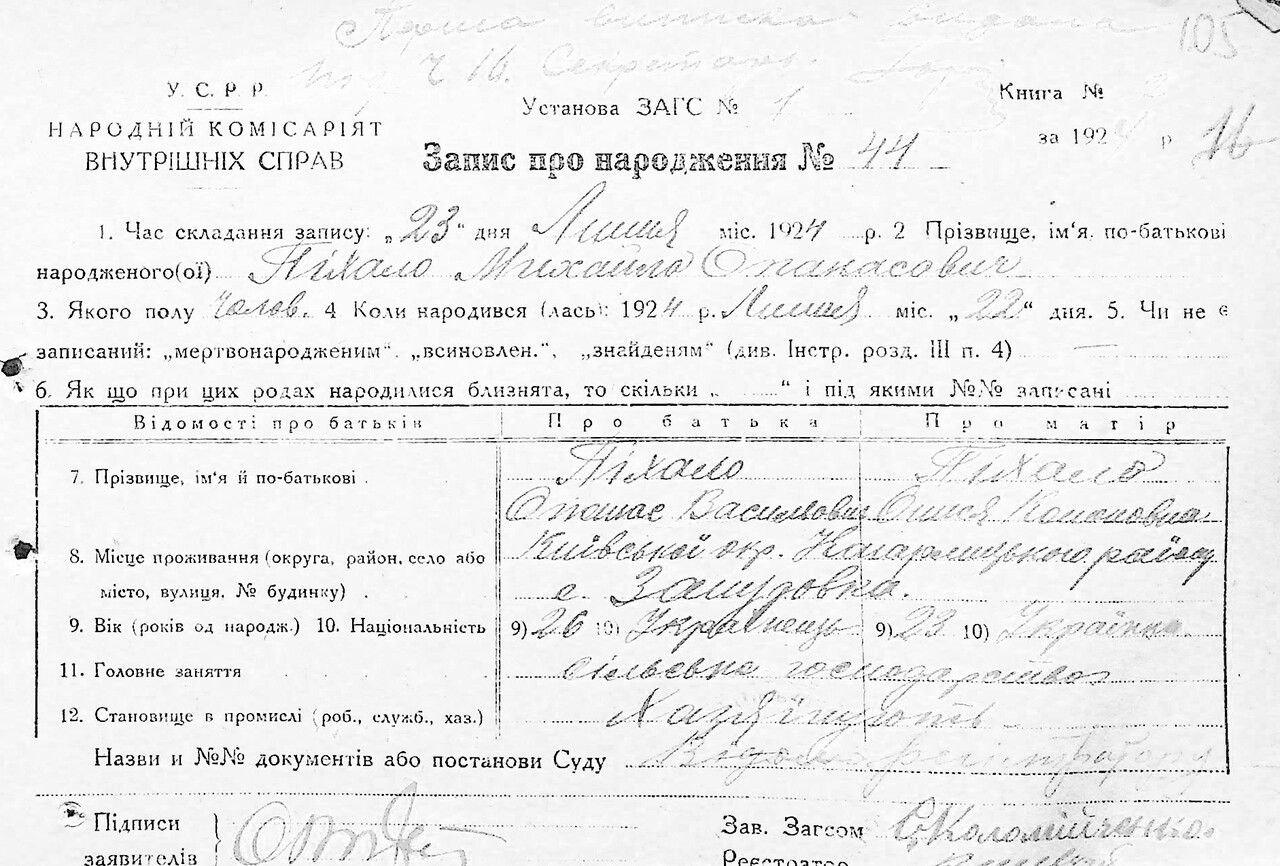 Перша виписка видана
Ч 16. Секретарь.
105
У. С. Р. Р.
НАРОДНІЙ КОМІСАРІЯТ
ВНУТРІШНІХ СПРАВ
Установа ЗАГС № 1
Книга №
за 1924 р 16
Запис про народження № 44
1. Час складання запису: „23“ дня Липня міс. 1924 р. 2 Прізвище, ім'я, по-батькові
народженого(ої) Піхало Михайло Опанасович
3. Якого полу чолов. 4 Коли народився (лась): 1924 р. Липня міс. „22“ дня. 5. Чи не є
записаний: „мертвонародженим“. „всиновлен.“, „знайденям“ (див. Інстр. розд. III п. 4) —
6. Як що при цих родах народилися близнята, то скільки „ “ і під якими №№ записані
Відомості про батьків Про батька Про матір
7. Прізвище, ім'я й по-батькові Піхало Піхало
Опанас Василович Онися Кононовна
8. Місце проживання (округа, район, село або Київської окр. Кагарлицького району
місто, вулиця, № будинку) с. Зашудовка.
9. Вік (років од народж.) 10. Національність 9) 26 10) Українець 9) 23 10) Українка
11. Головне заняття сільське господарство
12. Становище в промислі (роб., служб., хаз.) Хазяїнують
Назви и №№ документів або постанови Суду Відомі реєстратору
Підписи
заявителів
Зав. Загсом Коломійченко
Реєстратор